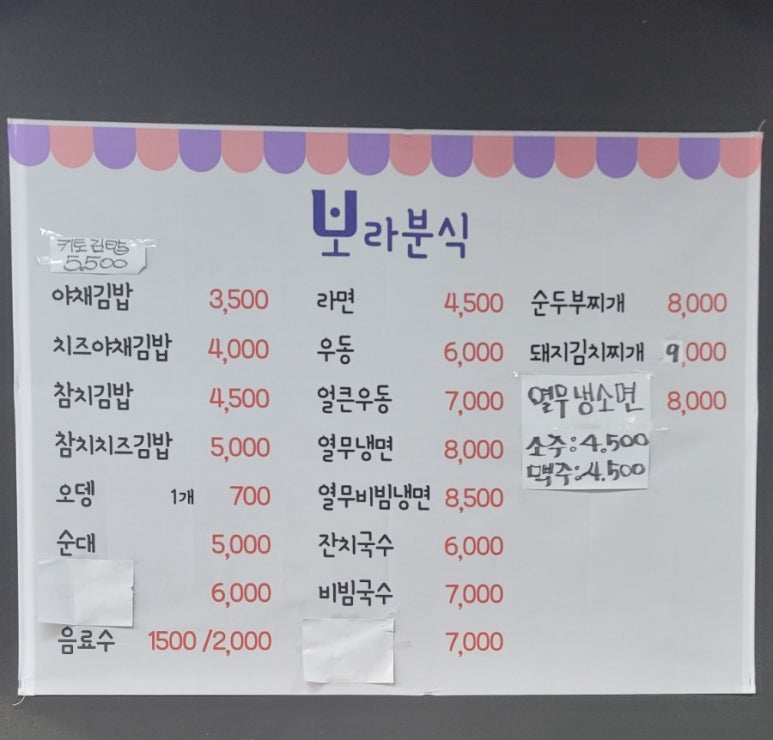 보라분식
키토김밥
5,500
야채김밥 3,500
치즈야채김밥 4,000
참치김밥 4,500
참치치즈김밥 5,000
오뎅 1개 700
순대 5,000
6,000
음료수 1500 /2,000
라면 4,500
우동 6,000
얼큰우동 7,000
열무냉면 8,000
열무비빔냉면 8,500
잔치국수 6,000
비빔국수 7,000
7,000
순두부찌개 8,000
돼지김치찌개 9,000
열무냉소면 8,000
소주:4.500
맥주:4.500